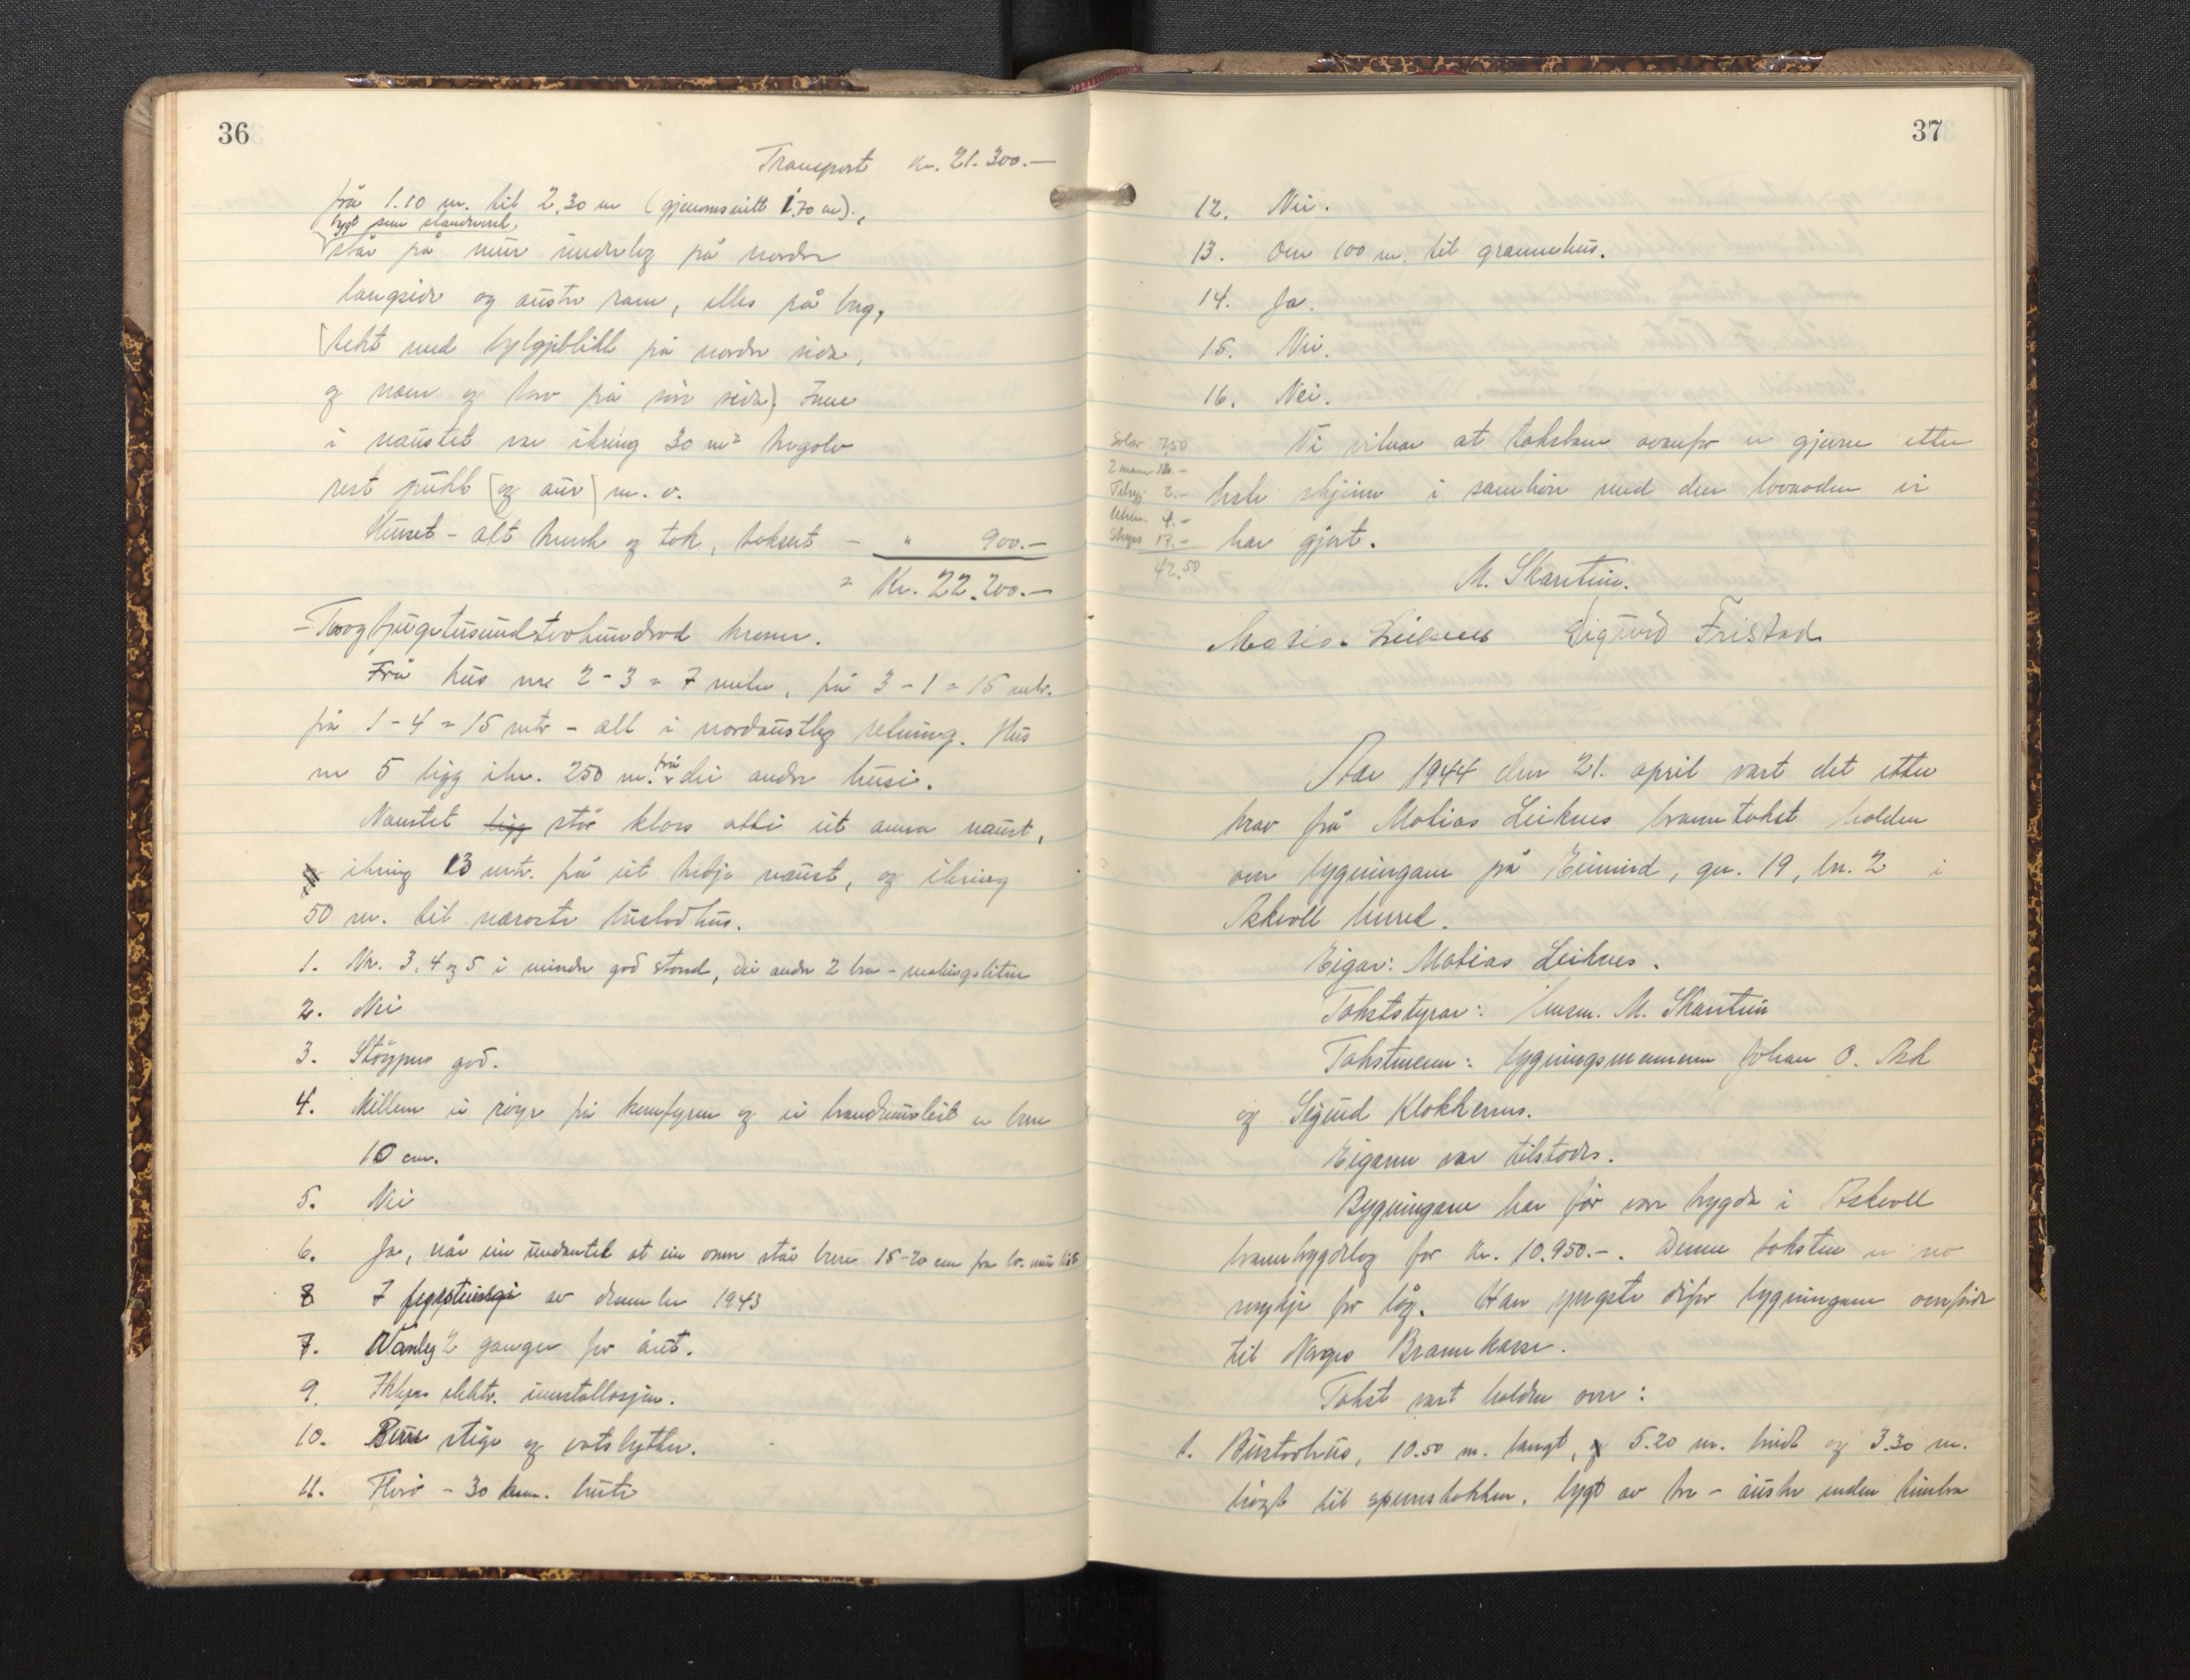 36
Transport kr. 21.300.—
frå 1.10 m. til 2,30 m (gjenomsnitt 1,70 m).,
bygt som standverk,
står på mur undelig på nordre
langside og austre ram, elles på
tekt med bylgjeblikk på nordre side,
og næver og torv på søre side). Inne
i naustet var ikring 30 m² tregolv
rest pukk (og aur) m. v.
Huset - alt herunder tak, taksert - " 900.—
= Kr. 22.200.—
- Toogtjugetusundtvohundrad kroner.
Frå hus nr 2 - 3 = 7 meter, frå 3 - 1 = 15 mtr.
frå 1 - 4 = 15 mtr - alt i nordaustleg retning. Hus
nr 5 ligg ikr. 250 m. frå dei andre husi.
Naustet ligg står kloss atti eit anna naust,
og ikring 13 mtr. frå eit tredje naust, og ikring
50 m. til næraste bustadhus.
1. Nr. 3, 4 og 5 i mindre god stand, dei andre 2 bra - malingslitne
2. Nei
3. Støypus god.
4. Millom i røyr frå komfyren og ei brandmurleist er berre
10 cm.
5. Nei
6. Ja, når ein undantek at ein omn står berre 15-20 cm frå br. mur
8 7 av desember 1943
7. Vanleg 2 gonger for året.
9. Ikkje elektr. innstallasjon.
10. Berre stige og vatsbytter.
11. Florø - 30 km. borte
37
12. Nei.
13. Om 100 m. til grannehus.
14. Ja.
15. Nei.
16. Nei.
Vi vitnar at taksten ovanfor er gjerne etter
beste skjønn i samhøve med den lovnaden vi
har gjort.
250
2 mann 12.-
2.-
4.-
Skyss 17.-
42.50
M. Skarstein.
Matias Leiknes Sigurd Fristad
Aar 1944 den 21. april vart det etter
krav frå Matias Leiknes branntakst halden
over bygningane på Eimind, gn. 19, bn. 2 i
Askvoll herred.
Eigar: Matias Leiknes.
Takststyrar: lensm. M. Skarstein
Takstmenn: bygningsmennene Johan O. Ask
og Sigurd Klokkernes.
Eigaren var tilstades.
Bygningane har før vore trygda i Askvoll
branntrygdelag for kr. 10.950.-. Denne taksten er no
mykje for låg. Han ynskte difor bygningane overførde
til Norges Brannkasse.
Takst vart halden over:
1. Bustadhus, 10.50 m. langt, og 5.20 m. breidt og 3.30 m.
høgt til sperrestokken, bygt av tre - austre enden timbra